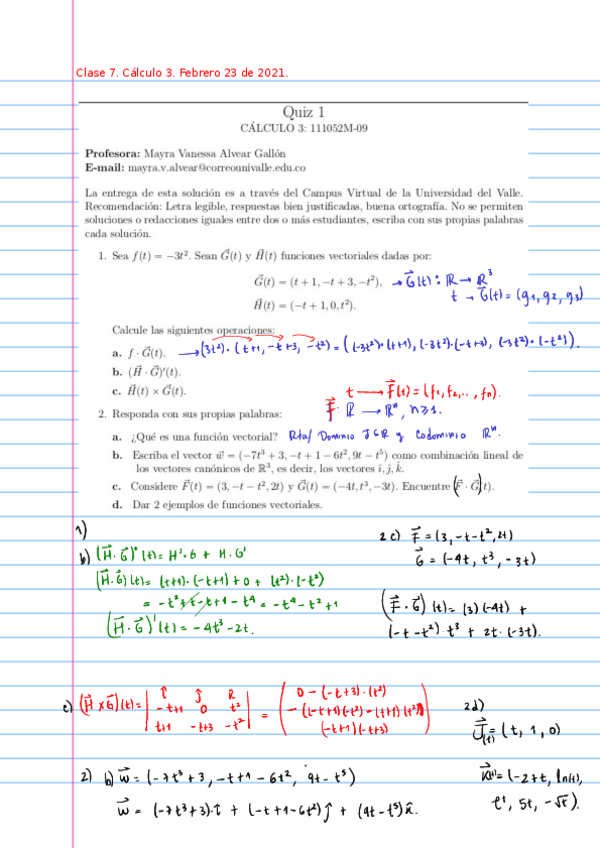 Clase 7. Cálculo 3. Febrero 23 de 2021.
Quiz 1
CÁLCULO 3: 111052M-09
Profesora: Mayra Vanessa Alvear Gallón
E-mail: mayra.v.alvear@correounivalle.edu.co
La entrega de esta solución es a través del Campus Virtual de la Universidad del Valle.
Recomendación: Letra legible, respuestas bien justificadas, buena ortografía. No se permiten
soluciones o redacciones iguales entre dos o más estudiantes, escriba con sus propias palabras
cada solución.
1. Sea f(t) = −3t². Sean G⃗(t) y H⃗(t) funciones vectoriales dadas por:
G⃗(t) = (t + 1, −t + 3, −t²), → G⃗(t): ℝ → ℝ³
t → G⃗(t) = (g₁, g₂, g₃)
H⃗(t) = (−t + 1, 0, t²).
Calcule las siguientes operaciones:
a. f · G⃗(t). → (3t²)·(t+1, −t+3, −t²) = ((−3t²)·(t+1), (−3t²)·(−t+3), (−3t²)·(−t²)).
b. (H⃗ · G⃗)′(t).
c. H⃗(t) × G⃗(t).
t → F⃗(t) = (f₁, f₂, .., fₙ).
F⃗: ℝ → ℝⁿ, n≥1.
2. Responda con sus propias palabras:
a. ¿Qué es una función vectorial? Rta/ Dominio J⊆ℝ y Codominio ℝⁿ.
b. Escriba el vector w⃗ = (−7t³ + 3, −t + 1 − 6t², 9t − t⁵) como combinación lineal de
los vectores canónicos de ℝ³, es decir, los vectores î, ĵ, k̂.
c. Considere F⃗(t) = (3, −t − t², 2t) y G⃗(t) = (−4t, t³, −3t). Encuentre (F⃗ · G⃗)(t).
d. Dar 2 ejemplos de funciones vectoriales.
1)
b) (H⃗·G⃗)′(t) = H′·G + H·G′
(H⃗·G⃗)(t) = (t+1)·(−t+1) + 0 + (t²)·(−t²)
= −t²+t−t+1−t⁴ = −t⁴−t²+1
(H⃗·G⃗)′(t) = −4t³−2t.
2c) F⃗ = (3, −t−t², 2t)
G⃗ = (−4t, t³, −3t)
(F⃗·G⃗)(t) = (3)(−4t) +
(−t−t²)·t³ + 2t·(−3t).
c) (H⃗×G⃗)(t) = | î ĵ k̂ | = ( 0 − (−t+3)·(t²)
−t+1 0 t² −((−t+1)(−t²) − (t+1)(t²))
t+1 −t+3 −t² (−t+1)(−t+3) )
2d)
J⃗(t) = (t, 1, 0)
2) b) w⃗ = (−7t³+3, −t+1−6t², 9t−t⁵)
w⃗ = (−7t³+3)·î + (−t+1−6t²)ĵ + (9t−t⁵)k̂.
K⃗(t) = (−2+t, ln(t),
eᵗ, 5t, −√t).